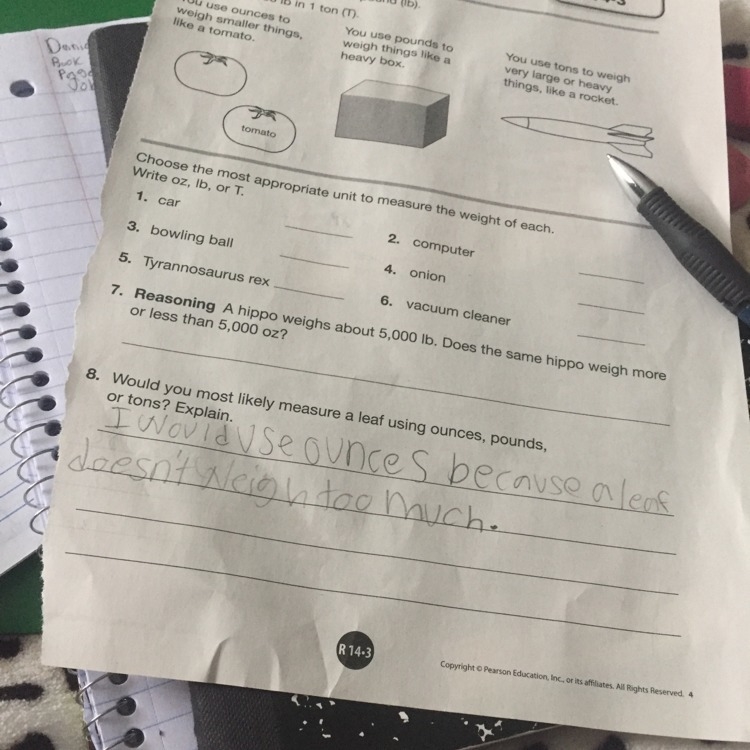 lb in 1 ton (T).
(lb).
You use ounces to
weigh smaller things,
like a tomato.
You use pounds to
weigh things like a
heavy box.
You use tons to weigh
very large or heavy
things, like a rocket.
tomato
Choose the most appropriate unit to measure the weight of each.
Write oz, lb, or T.
1. car
2. computer
3. bowling ball
4. onion
5. Tyrannosaurus rex
6. vacuum cleaner
7. Reasoning A hippo weighs about 5,000 lb. Does the same hippo weigh more
or less than 5,000 oz?
8. Would you most likely measure a leaf using ounces, pounds,
or tons? Explain.
I would use ounces because a leaf
doesn't weigh too much.
R 14•3
Copyright © Pearson Education, Inc., or its affiliates. All Rights Reserved. 4